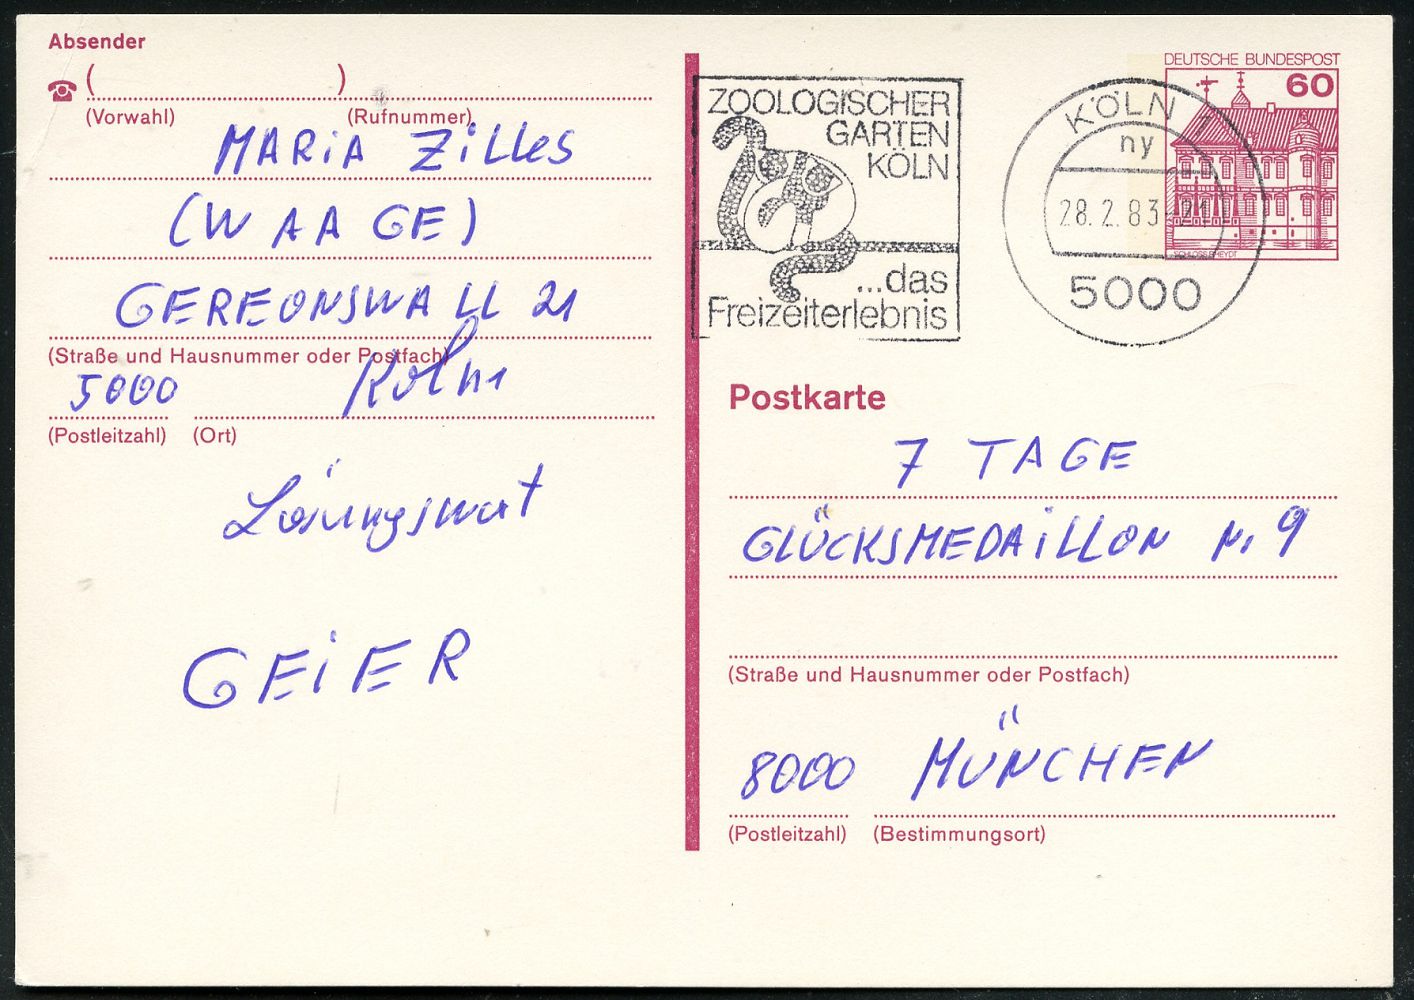 Absender
( )
(Vorwahl) (Rufnummer)
MARiA ZiLLES
(WAAGE)
GEREONSWALL 21
(Straße und Hausnummer oder Postfach)
5000 Köln 1
(Postleitzahl) (Ort)
Lösungswort
GEiER
ZOOLOGISCHER
GARTEN
KÖLN
...das
Freizeiterlebnis
KÖLN 1
ny
28.2.83-21
5000
DEUTSCHE BUNDESPOST
60
SCHLOSS RHEYDT
Postkarte
7 TAGE
GLÜCKSMEDAiLLON Nr 9
(Straße und Hausnummer oder Postfach)
8000 MÜNCHEN
(Postleitzahl) (Bestimmungsort)